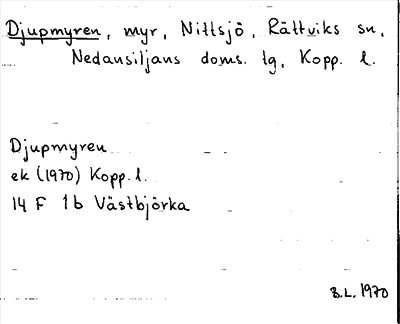 Djupmyren, myr, Nittsjö, Rättviks sn,
Nedansiljans doms. tg, Kopp. l.
Djupmyren
ek (1970) Kopp. l.
14 F 1b Västbjörka
B.L. 1970